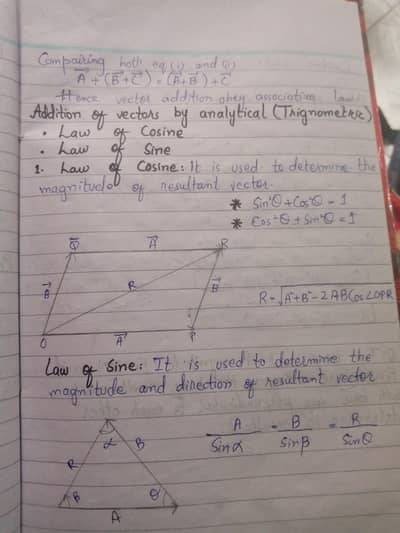 Comparing both eq (i) and (ii)
A⃗ + (B⃗+C⃗) = (A⃗+B⃗)+C⃗
Hence vector addition obey associative law
Addition of vectors by analytical (Trignometric)
• Law of Cosine
• Law of Sine
1. Law of Cosine: It is used to determine the
magnitude of resultant vector.
* Sin²θ + Cos²θ = 1
* Cos²θ + Sin²θ = 1
Q A⃗ R
B⃗ R B⃗
R = √A²+B²-2ABCos∠OPR
O A⃗ P
Law of Sine: It is used to determine the
magnitude and direction of resultant vector
A/Sinα = B/Sinβ = R/Sinθ
α
R B
β θ
A